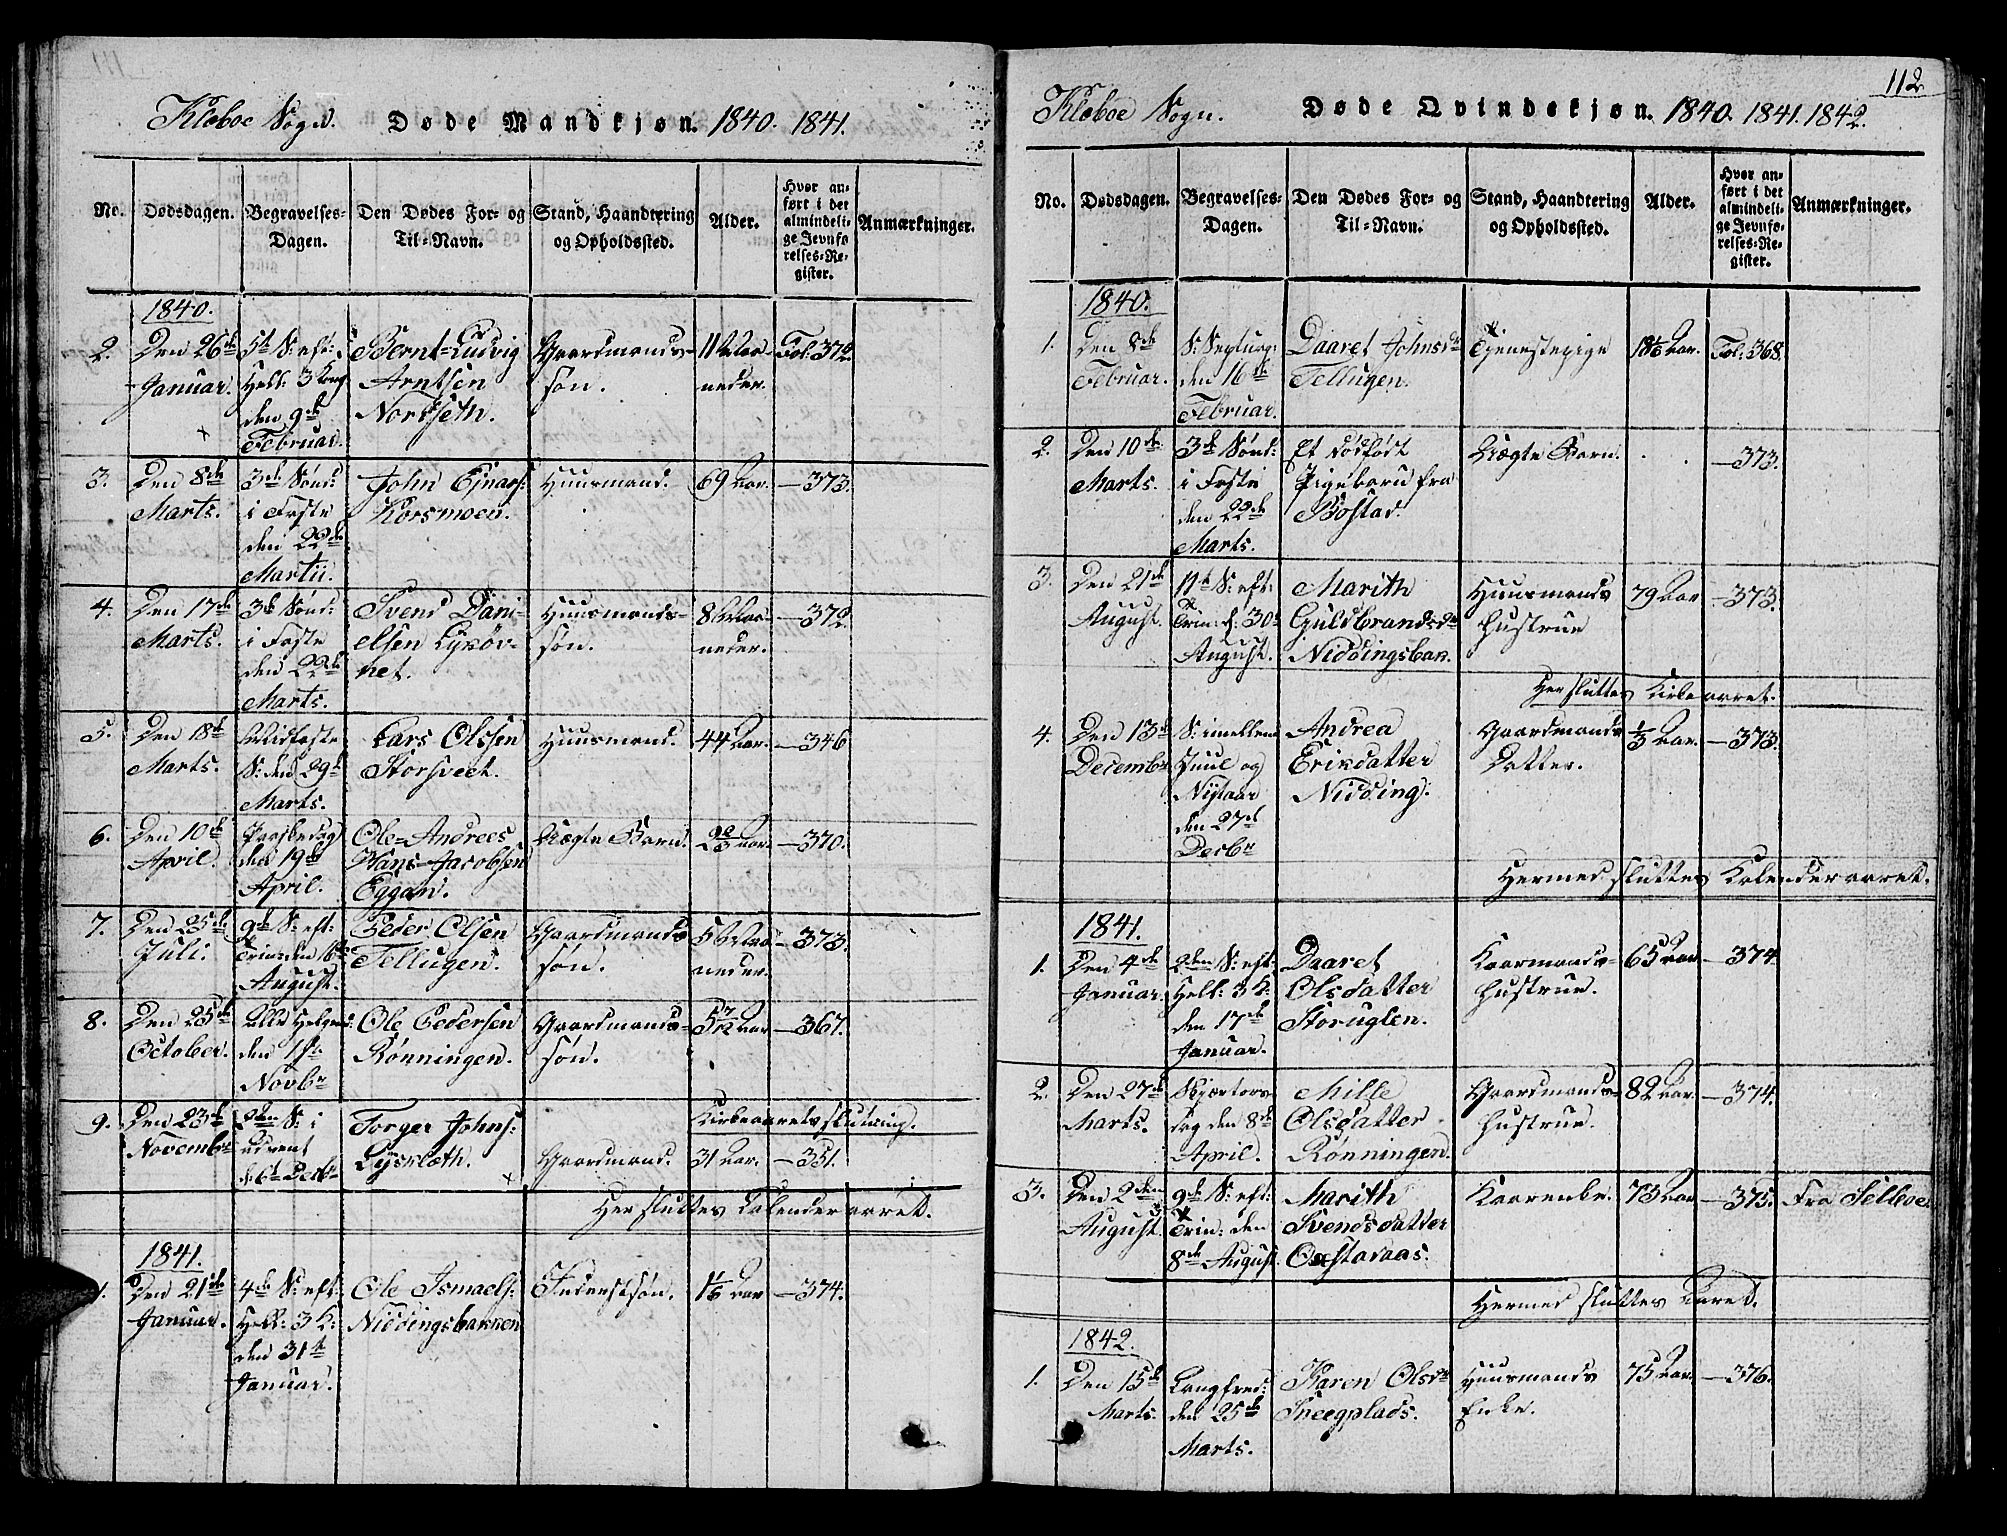 Klæboe Sogn. Døde Mandkjøn. 1840. 1841.
No. Dødsdagen. Begravelses-Dagen. Den Dødes For- og Til-Navn. Stand, Haandtering og Opholdssted. Alder. Hvor anført i det almindelige Jevnførelses-Register. Anmærkninger.
1840.
2. Den 26de 5te S: eft: Bernt-Ludvig Gaardmands- 11 Maa- Fol: 372.
Januar. Hell: 3 Kong Arntsen søn. neder.
den 9de Norsseth.
Februar.
3. Den 8de 3de Sønd: John Ejnars: Huusmand. 69 Aar. —373.
Marts. i Faste Korsmoen.
den 22de
Martii.
4. Den 17de 3de Sønd: Svend Dani- Huusmands- 8 Maa- —372.
Marts. i Faste elsen søn. neder.
den 22de net.
Marts.
5. Den 18de Midfaste Lars Olssen Huusmand. 44 Aar. —346
Marts. S: den 29de Storsveet.
Marts.
6. Den 10de Paaskedag Ole-Andreas Uægte Barn. Aar. —370.
April. den 19de Hans-Jacobsen
April. Eggan.
7. Den 25de 9de S: eft: Peder Olsen Gaardmands 5 Maa- —373.
Juli. Trin: den 16de Tellugen. søn. neder.
August.
8. Den 25de Alle Helgens Ole Pedersen Gaardmands- 5 7/12 Aar —367.
October. den 1ste Rønningen. søn.
Novbr
9. Den 23de 2den S: i Torger Johns: Kirkeaarets slutning.
Novembr Advent Lysklæth. Gaardmand. 31 Aar. —351.
d: 6te Decbr
Her sluttes Kalenderaaret.
1841.
1. Den 21de 4de S: eft: Ole Ismaels: Inderstsøn. Aar —374.
Januar. Hell: 3 K: Niddingsbakken
den 31te
Januar.
112
Klæboe Sogn. Døde Qvindekjøn. 1840. 1841. 1842.
No. Dødsdagen. Begravelses-Dagen. Den Dødes For- og Til-Navn. Stand, Haandtering og Opholdssted. Alder. Hvor anført i det almindelige Jevnførelses-Register. Anmærkninger.
1840.
1. Den 8de S: Septuag: Daaret Johnsdr Tjenestepige Aar. Fol: 368.
Februar. den 16de Tellugen.
Februar.
2. Den 10de 3de Sønd: Et dødfødt Uægte Barn. . . —373.
Marts. i Faste Pigebarn fra
den 22de Bostad.
Marts.
3. Den 21de 11te S: eft: Marith Huusmands 79 Aar —373.
August. Trin: d: 30te Guldbrandsdr Hustrue
August. Niddingsbak.
Her sluttes Kirkeaaret.
4. Den 13de S: imellem Andrea Gaardmands 1/3 Aar. —373.
Decembr Juul og Eriksdatter Datter.
Nytaar Nidding:
den 27de
Decbr
Hermed sluttes Kalenderaaret.
1841.
1. Den 4de 2den S: eft: Daaret Kaarmands- 65 Aar —374
Januar. Hell: 3 K: Olsdatter Hustrue.
den 17de Storuglen.
Januar.
2. Den 27de Skjærtors Mille Gaardmands- 82 Aar. —374.
Marts. dag den 8de Olsdatter Hustrue.
April. Rønningen.
3. Den 2den 9de S: eft: Marith Kaarenke. 73 Aar —375. Fra Selboe.
August. Trin: den Svendsdatter
8de August. Oustaraas.
Hermed sluttes Aaret.
1842.
1. Den 15de Langfred: Karen Olsdr Huusmands 75 Aar. —376.
Marts. den 25de Sneegplads. Enke.
Marts.